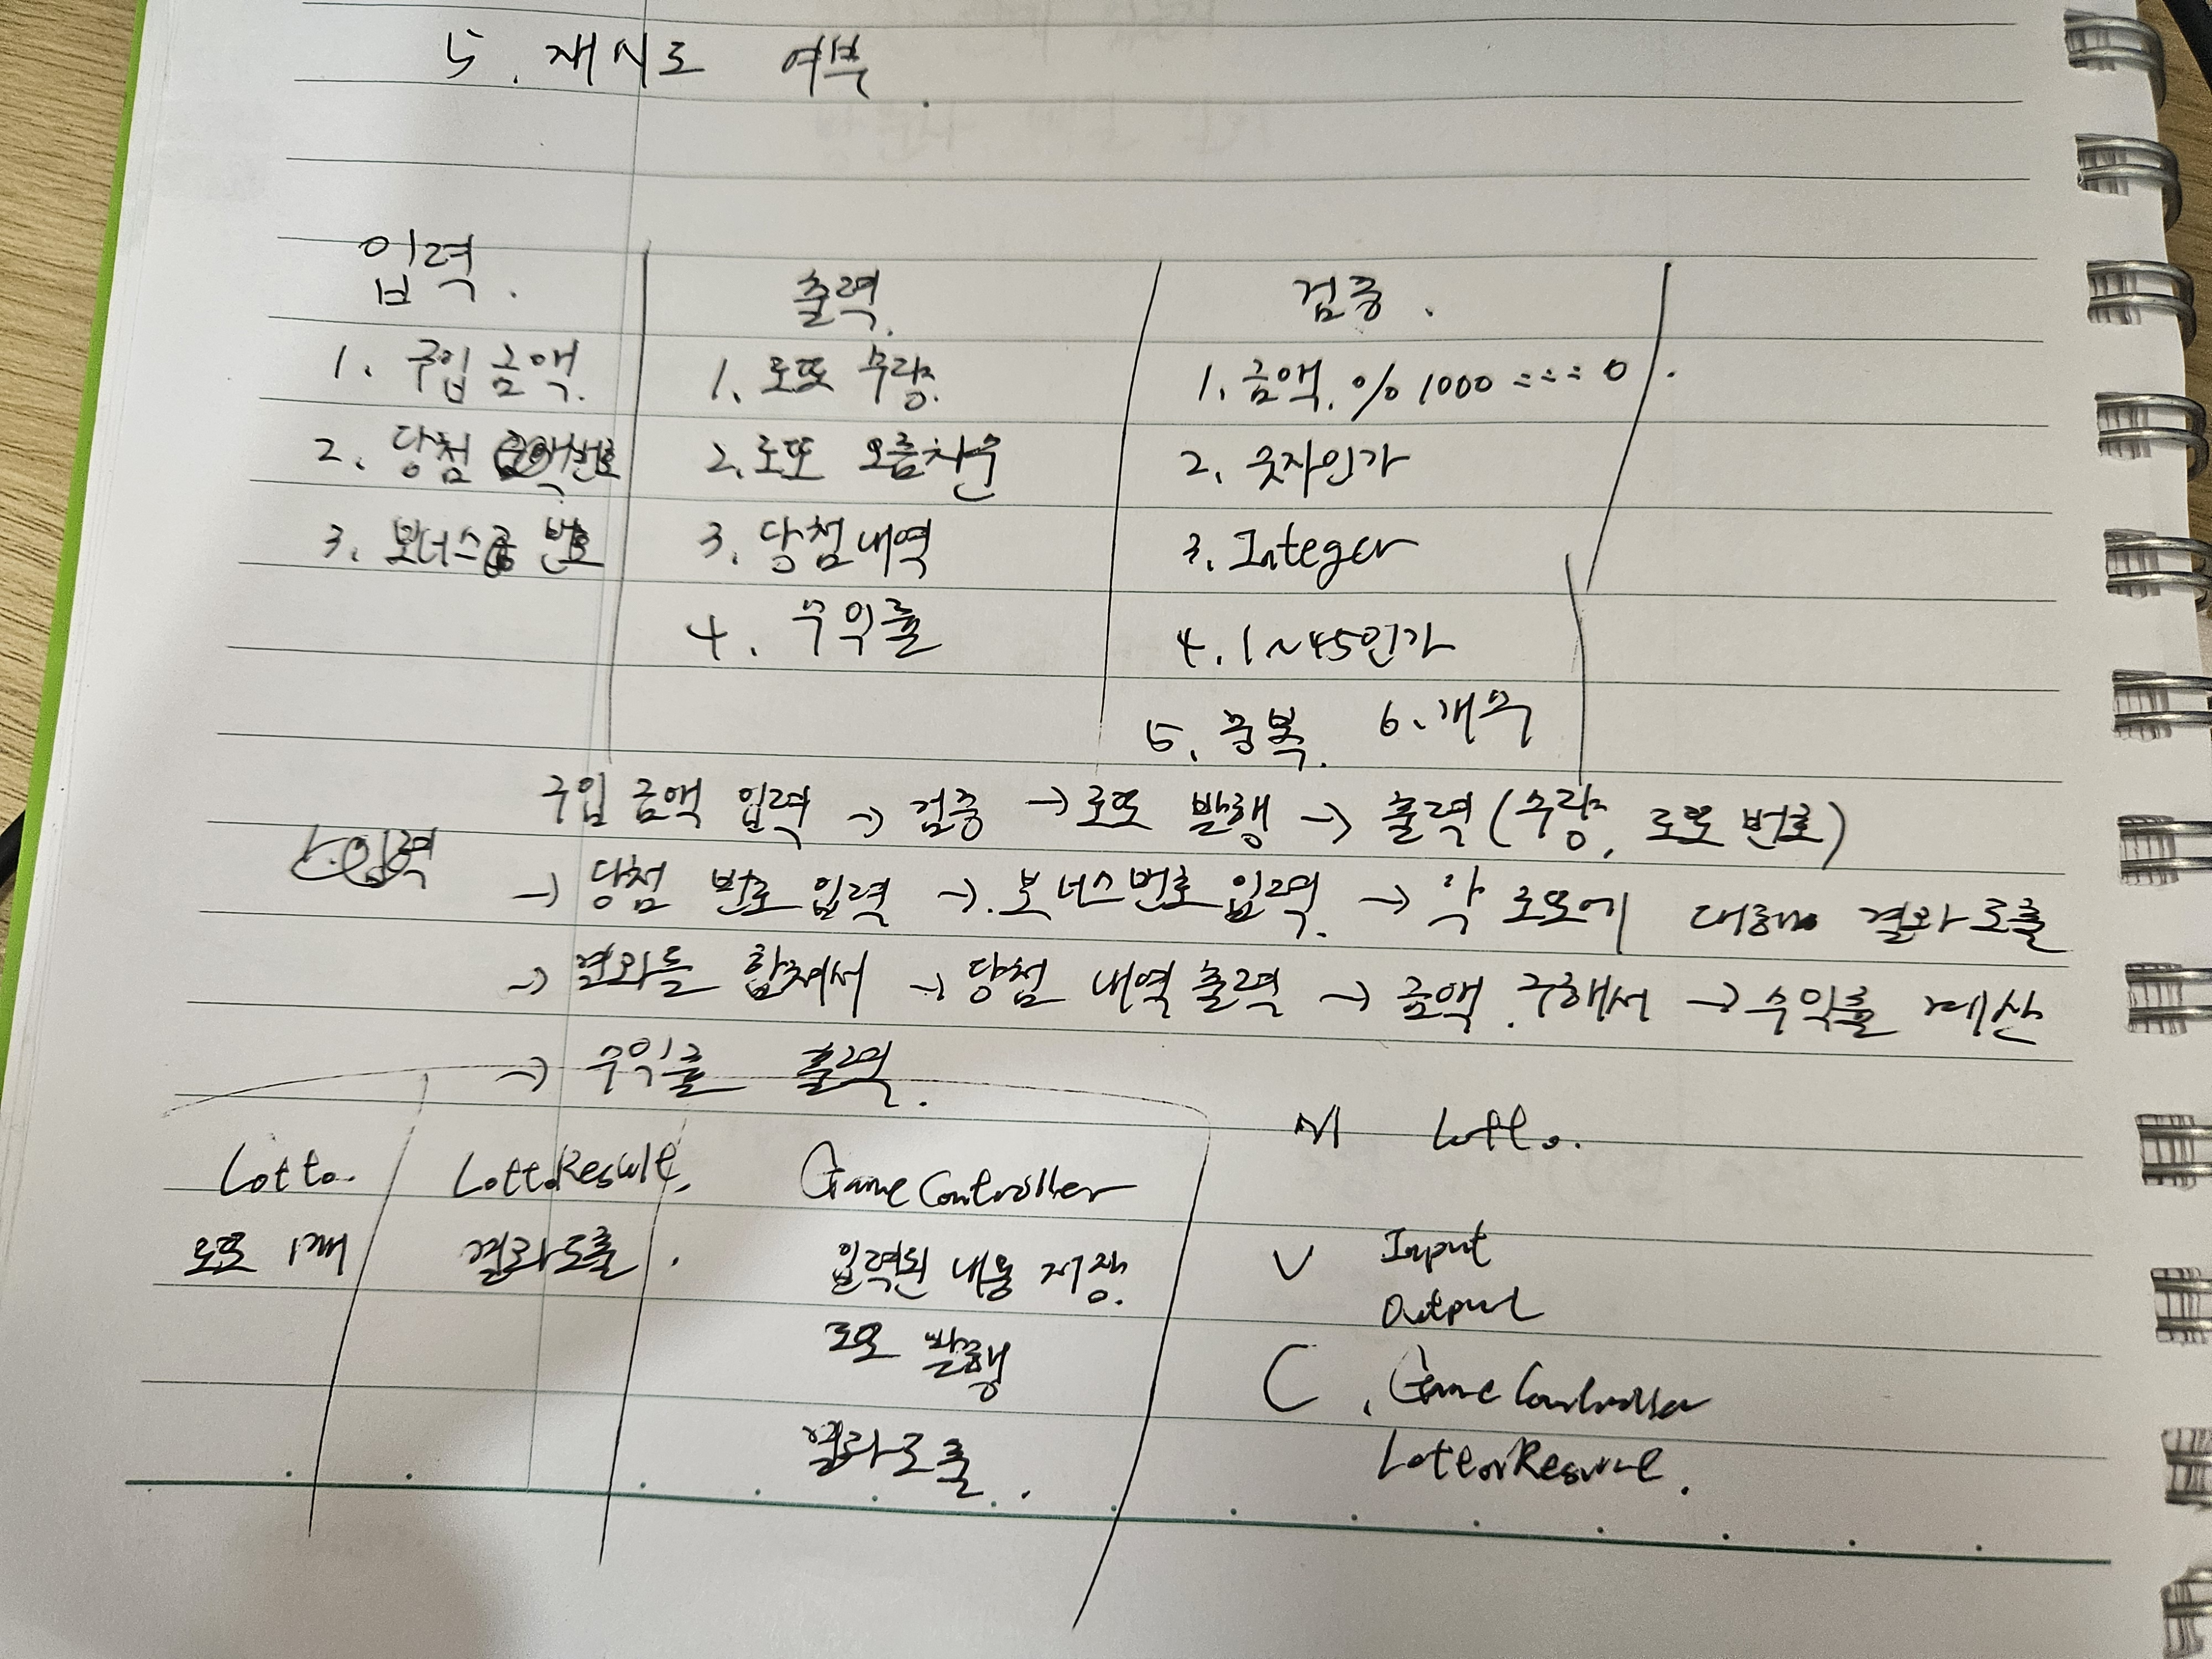 5. 재시도 여부.
입력.
1. 구입 금액.
2. 당첨 번호
3. 보너스 번호
출력.
1. 로또 수량.
2. 로또 오름차순
3. 당첨 내역
4. 수익률
검증.
1. 금액. % 1000 === 0.
2. 숫자인가
3. Integer
4. 1~45인가
5. 중복. 6. 개수
구입 금액 입력 → 검증 → 로또 발행 → 출력 (수량, 로또 번호)
입력
→ 당첨 번호 입력 → 보너스번호 입력. → 각 로또에 대해 결과 도출
→ 결과를 합쳐서 → 당첨 내역 출력 → 금액 구해서 → 수익률 계산
→ 수익률 출력.
Lotto.
로또 1개
LottoResult.
결과도출.
GameController
입력된 내용 저장.
로또 발행
결과도출.
M Lotto.
V Input
Output
C GameController
LottoResult.